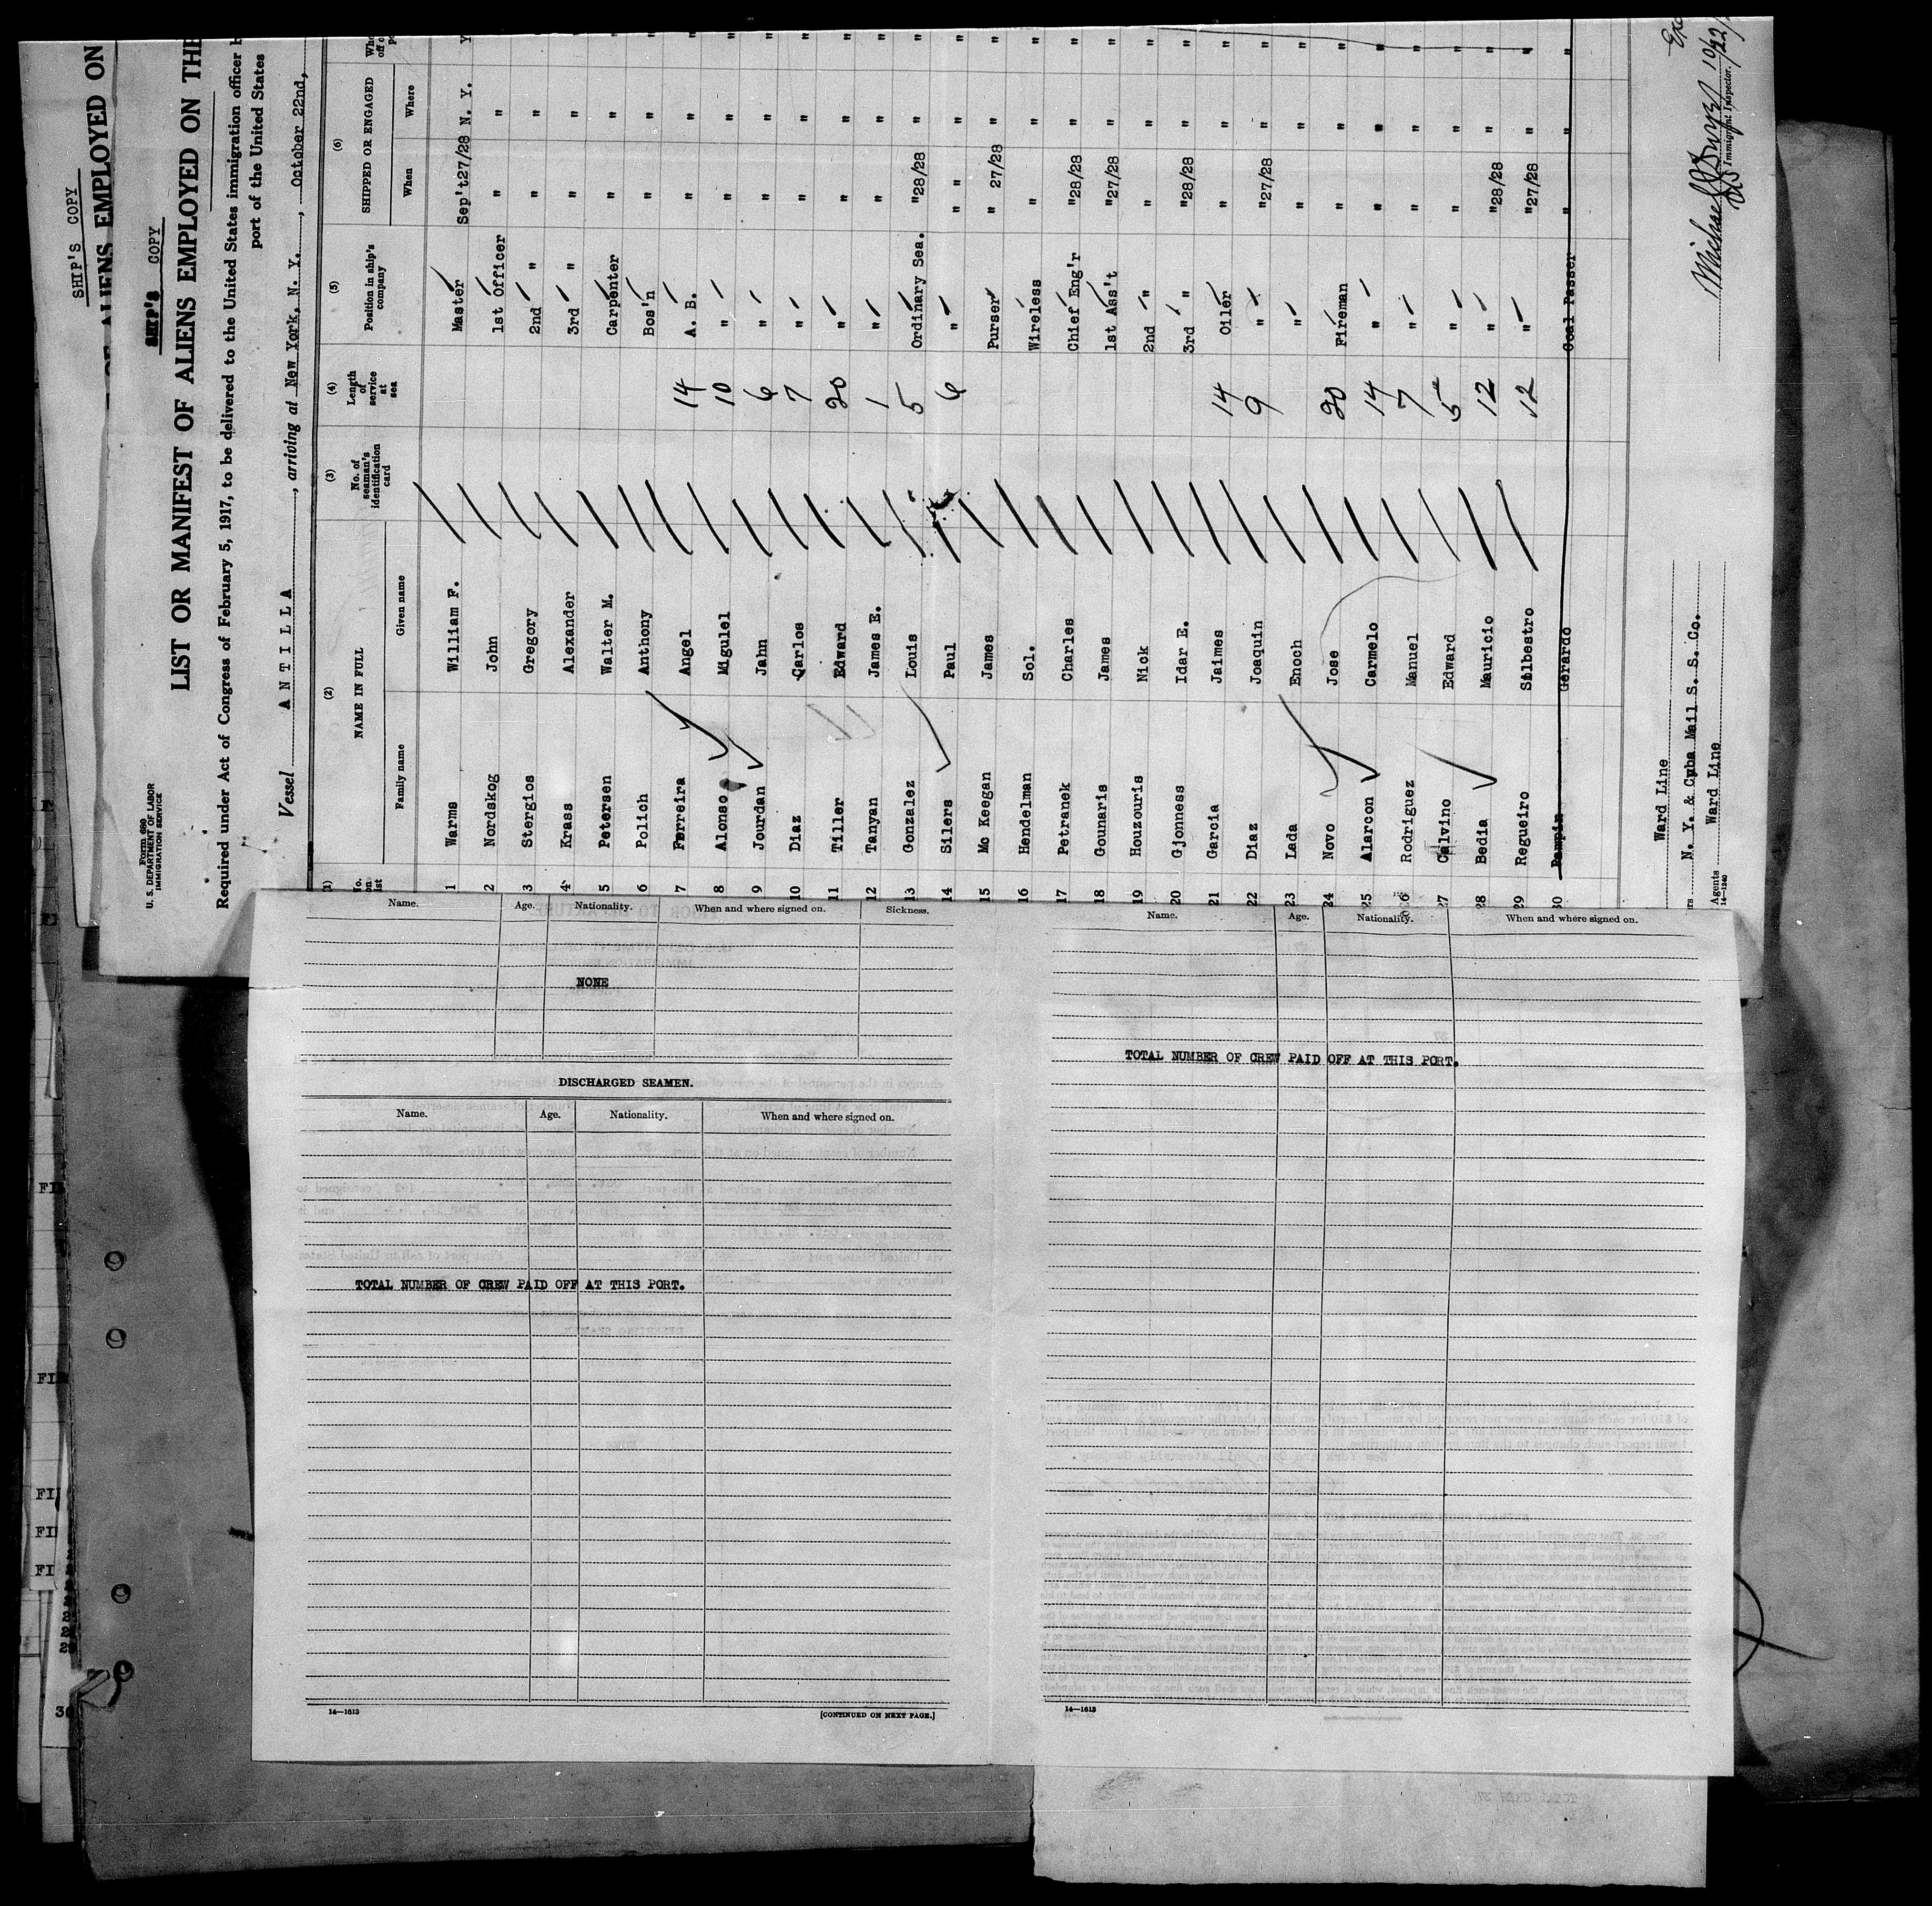 SHIP'S COPY
ALIENS EMPLOYED ON
SHIP'S COPY
Form 680
U. S. DEPARTMENT OF LABOR
IMMIGRATION SERVICE
LIST OR MANIFEST OF ALIENS EMPLOYED ON THE
Required under Act of Congress of February 5, 1917, to be delivered to the United States immigration officer
port of the United States
Vessel ANTILLA, arriving at New York, N. Y., October 22nd,
(2) (3) (4) (5) (6)
NAME IN FULL No. of seaman's identification card Length of service at sea Position in ship's company SHIPPED OR ENGAGED
Family name Given name When Where
1 Warms William F. Master Sep't27/28 N. Y.
2 Nordskog John 1st Officer " "
3 Stergios Gregory 2nd " " "
4 Krass Alexander 3rd " " "
5 Petersen Walter M. Carpenter " "
6 Polich Anthony Bos'n " "
7 Ferreira Angel 14 A. B. " "
8 Alonso Migulel 10 " " "
9 Jourdan Jahn 6 " " "
10 Diaz Carlos 7 " " "
11 Tiller Edward 20 " " "
12 Tanyan James E. 1 " " "
13 Gonzalez Louis 5 Ordinary Sea. "28/28 "
14 Silers Paul 6 " " "
15 Mc Keegan James Purser " 27/28 "
16 Hendelman Sol. Wireless " "
17 Petranek Charles Chief Eng'r "28/28 "
18 Gounaris James 1st Ass't "27/28 "
19 Houzouris Nick 2nd " " "
20 Gjonness Idar E. 3rd " "28/28 "
21 Garcia Jaimes 14 Oiler " "
22 Diaz Joaquin 9 " "27/28 "
23 Lada Enoch " " "
24 Novo Jose 20 Fireman " "
25 Alarcon Carmelo 14 " " "
26 Rodriguez Manuel 7 " " "
27 Calvino Edward 5 " " "
28 Bedia Mauricio 12 " "28/28 "
29 Regueiro Silbestro 12 " "27/28 "
30 Pampin Gerardo Coal Passer " "
Ward Line
N. Y. & Cuba Mail S. S. Co.
Agents Ward Line
14—1240
Immigrant Inspector.
Name. Age. Nationality. When and where signed on. Sickness.
NONE
DISCHARGED SEAMEN.
Name. Age. Nationality. When and where signed on.
TOTAL NUMBER OF CREW PAID OFF AT THIS PORT.
14—1613 [CONTINUED ON NEXT PAGE.]
Name. Age. Nationality. When and where signed on.
TOTAL NUMBER OF CREW PAID OFF AT THIS PORT.
14—1613